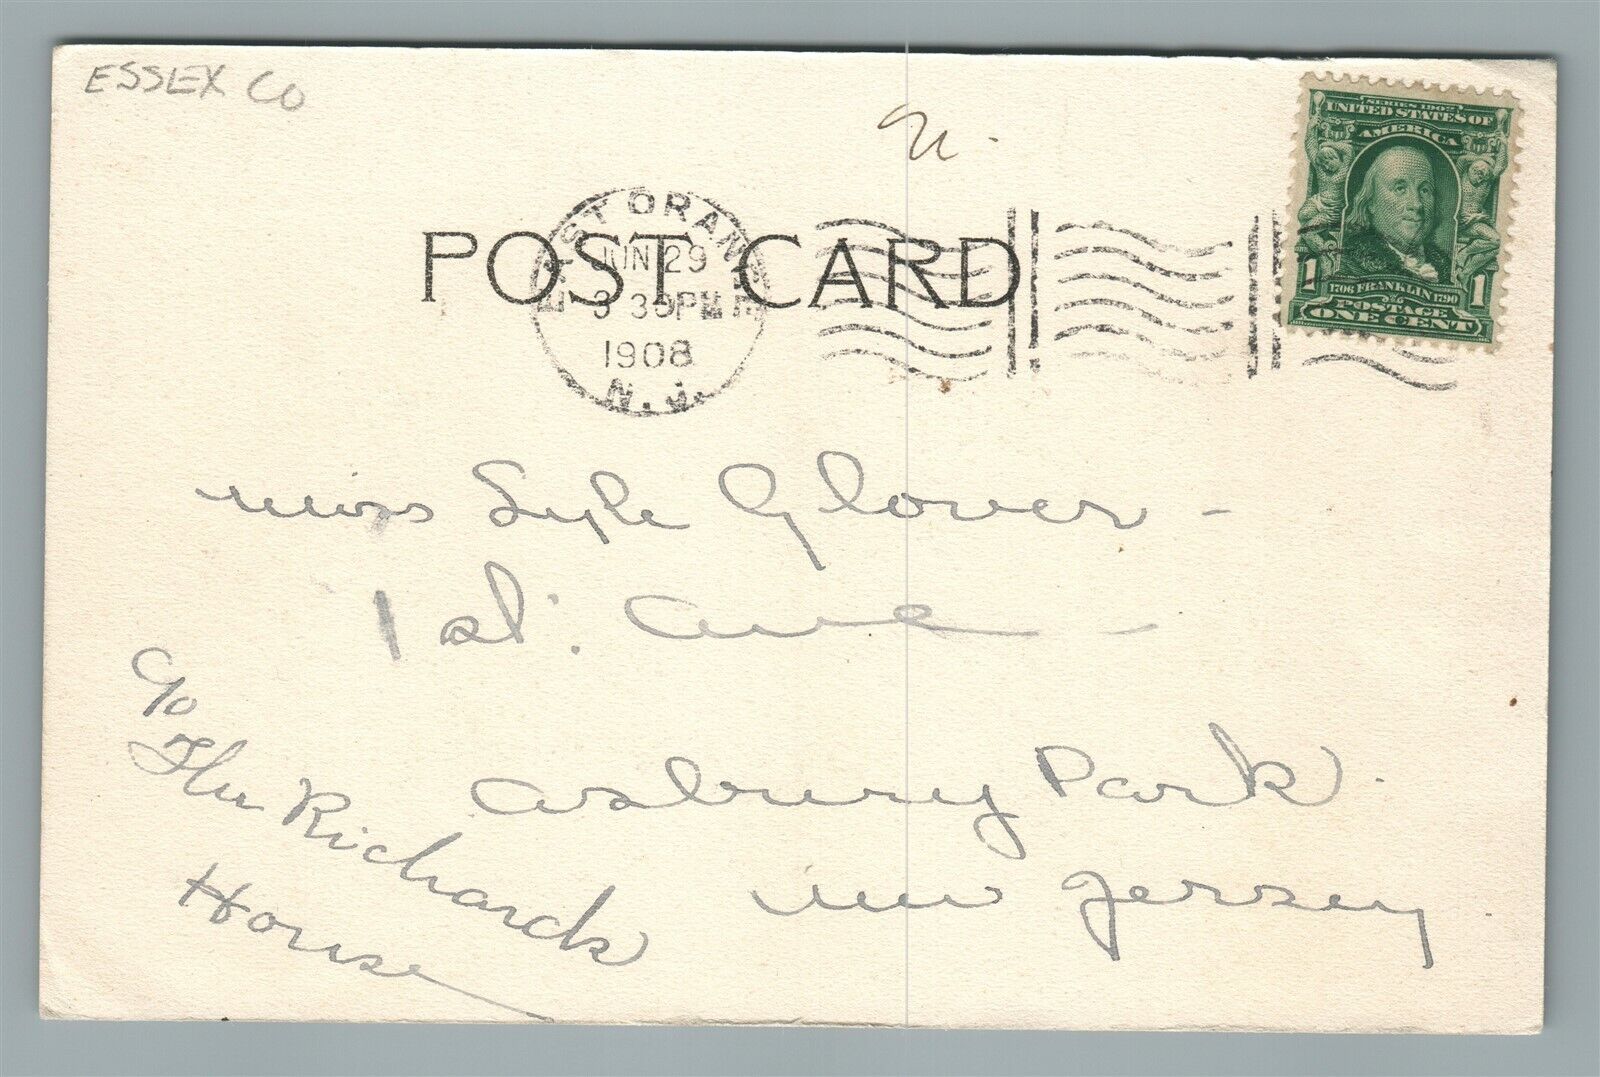 ESSEX CO
SERIES 1902
UNITED STATES OF
AMERICA
1 1
1706 FRANKLIN 1790
POSTAGE
ONE CENT
EAST ORANGE
JUN 29
3 30PM
1908
N.J.
POST CARD
Miss Lyle Glover -
1st. Ave -
Asbury Park.
New Jersey
c/o
The Richards
House